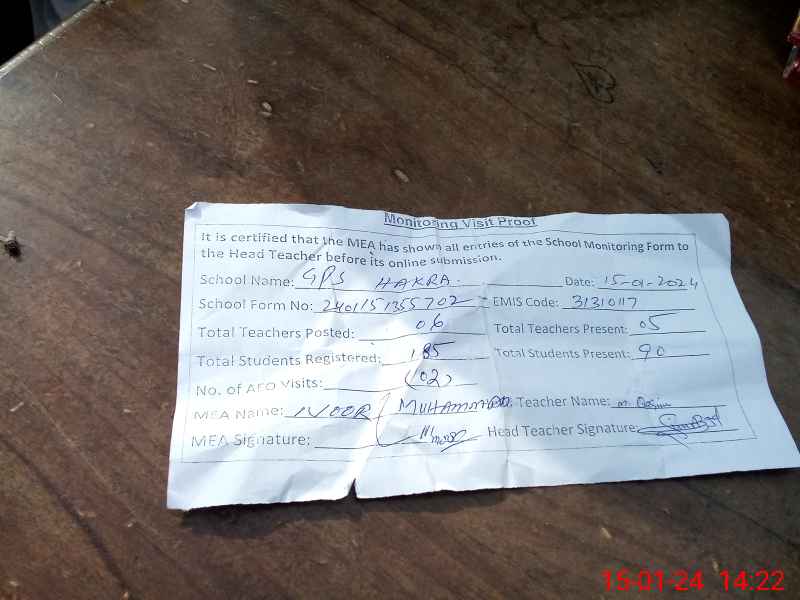 Monitoring Visit Proof
It is certified that the MEA has shown all entries of the School Monitoring Form to
the Head Teacher before its online submission.
School Name: GPS HAKRA. Date: 15-01-2024
School Form No: 2401151355702 EMIS Code: 3131017
Total Teachers Posted: 06 Total Teachers Present: 05
Total Students Registered: 185 Total Students Present: 90
No. of AEO Visits: (02)
MEA Name: NOOR MUHAMMAD Teacher Name: M. Qasim
MEA Signature: Head Teacher Signature:
15-01-24 14:22